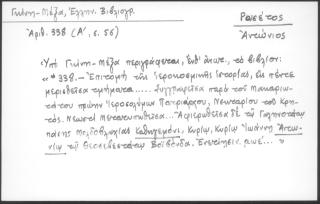 Γκίνη-Μέξα, Ἑλλην. Βιβλιογρ.
Ἀριθ. 338 (Α΄, σ. 56)
Ῥωσέτος
Ἀντώνιος
Ὑπό Γκίνη-Μέξα περιγράφεται, ἐνθ' ἀνωτ., τό βιβλίον:
«*338.— Ἐπιτομή τῆς ἱεροκοσμικῆς ἱστορίας, εἰς πέντε
μερισθεῖσα τμήματα..... Συγγραφεῖσα παρά τοῦ Μακαριω-
τάτου πρώην Ἱεροσολύμων Πατριάρχου, Νεκταρίου τοῦ Κρη-
τός. Νεωστί Μετατυπωθεῖσα... Ἀφιερωθεῖσα δέ τῷ Γαληνοτάτῳ
πάσης Μολδοβλαχίας Καθηγεμόνι, Κυρίῳ, Κυρίῳ Ἰωάννῃ Ἀντω-
νίῳ τῷ Θεοσεβεστάτῳ Βοϊβόνδα. Ἐνετίησιν,